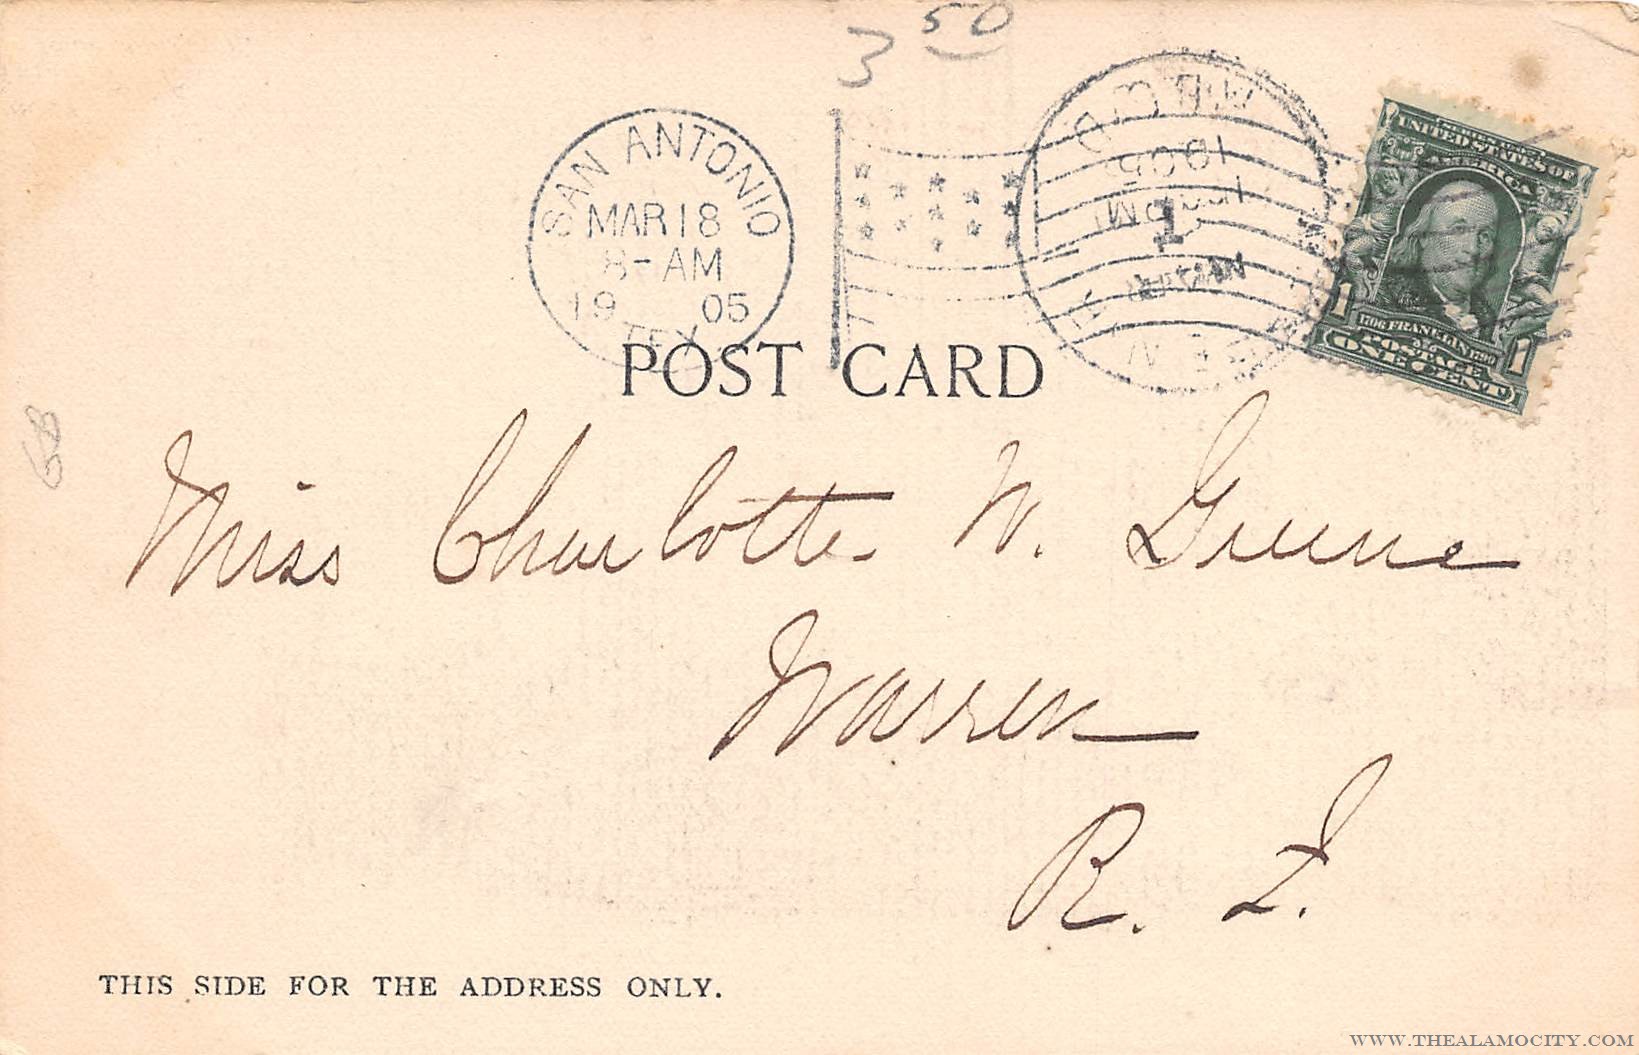 3 50
SAN ANTONIO
MAR 18
8-AM
19 05
TEX
1905
SERIES 1902
UNITED STATES OF
AMERICA
1706 FRANKLIN 1790
1 POSTAGE 1
ONE CENT
POST CARD
Miss Charlotte W. Greene
Warren
R. I.
THIS SIDE FOR THE ADDRESS ONLY.
WWW.THEALAMOCITY.COM